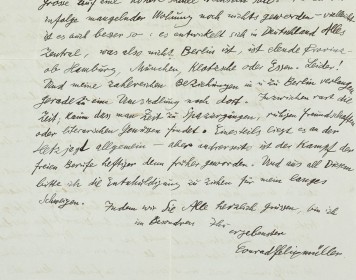 infolge mangelnder Wohnung noch nichts geworden – vielleicht
ist es auch besser so: es entwickelt sich in Deutschland Alles
zentral, was also nicht Berlin ist, ist elende Provinz
ob Hamburg, München, Klotzsche oder Essen. Leider!
Und meine zahlreichen Beziehungen in u. zu Berlin verlangen
geradezu eine Umsiedlung nach dort. Inzwischen rast die
Zeit, kaum dass man Zeit zu Spaziergängen, ruhigen Freundschaften
oder literarischen Genüssen findet. Einesteils liegt es an der
Hetzjagd allgemein – aber andrerseits: ist der Kampf der
freien Berufe heftiger denn früher geworden. Und aus all Diesem
bitte ich die Entschuldigung zu ziehen für mein langes
Schweigen.
Indem wir Sie Alle herzlich grüssen, bin ich
im Besondren Ihr
ergebener
Conrad Felixmüller